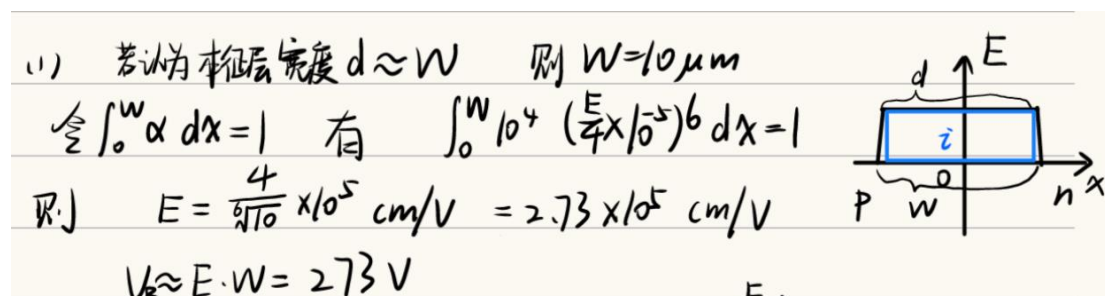 (1) 若认为本征层宽度 d≈W 则 W=10μm
令 ∫₀ᵂ α dx = 1 有 ∫₀ᵂ 10⁴ (E/4 ×10⁻⁵)⁶ dx = 1
则 E = 4/⁶√10 ×10⁵ cm/V = 2.73 ×10⁵ cm/V
V_B≈E·W = 273 V
E
d
i
0
x
P W n